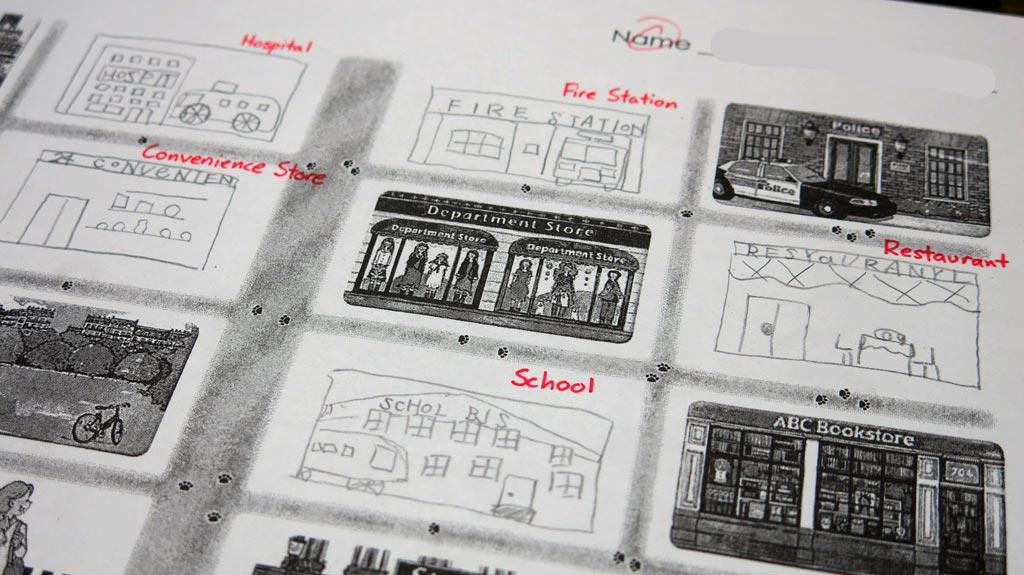 Name
Hospital
HOSPIT
Fire Station
FIRE STATION
Police
Police
Convenience Store
24 CONVENIEN
Department Store
Department Store
Department Store
Restaurant
RESTaURANT
School
SCHOL BIS
ABC Bookstore
704